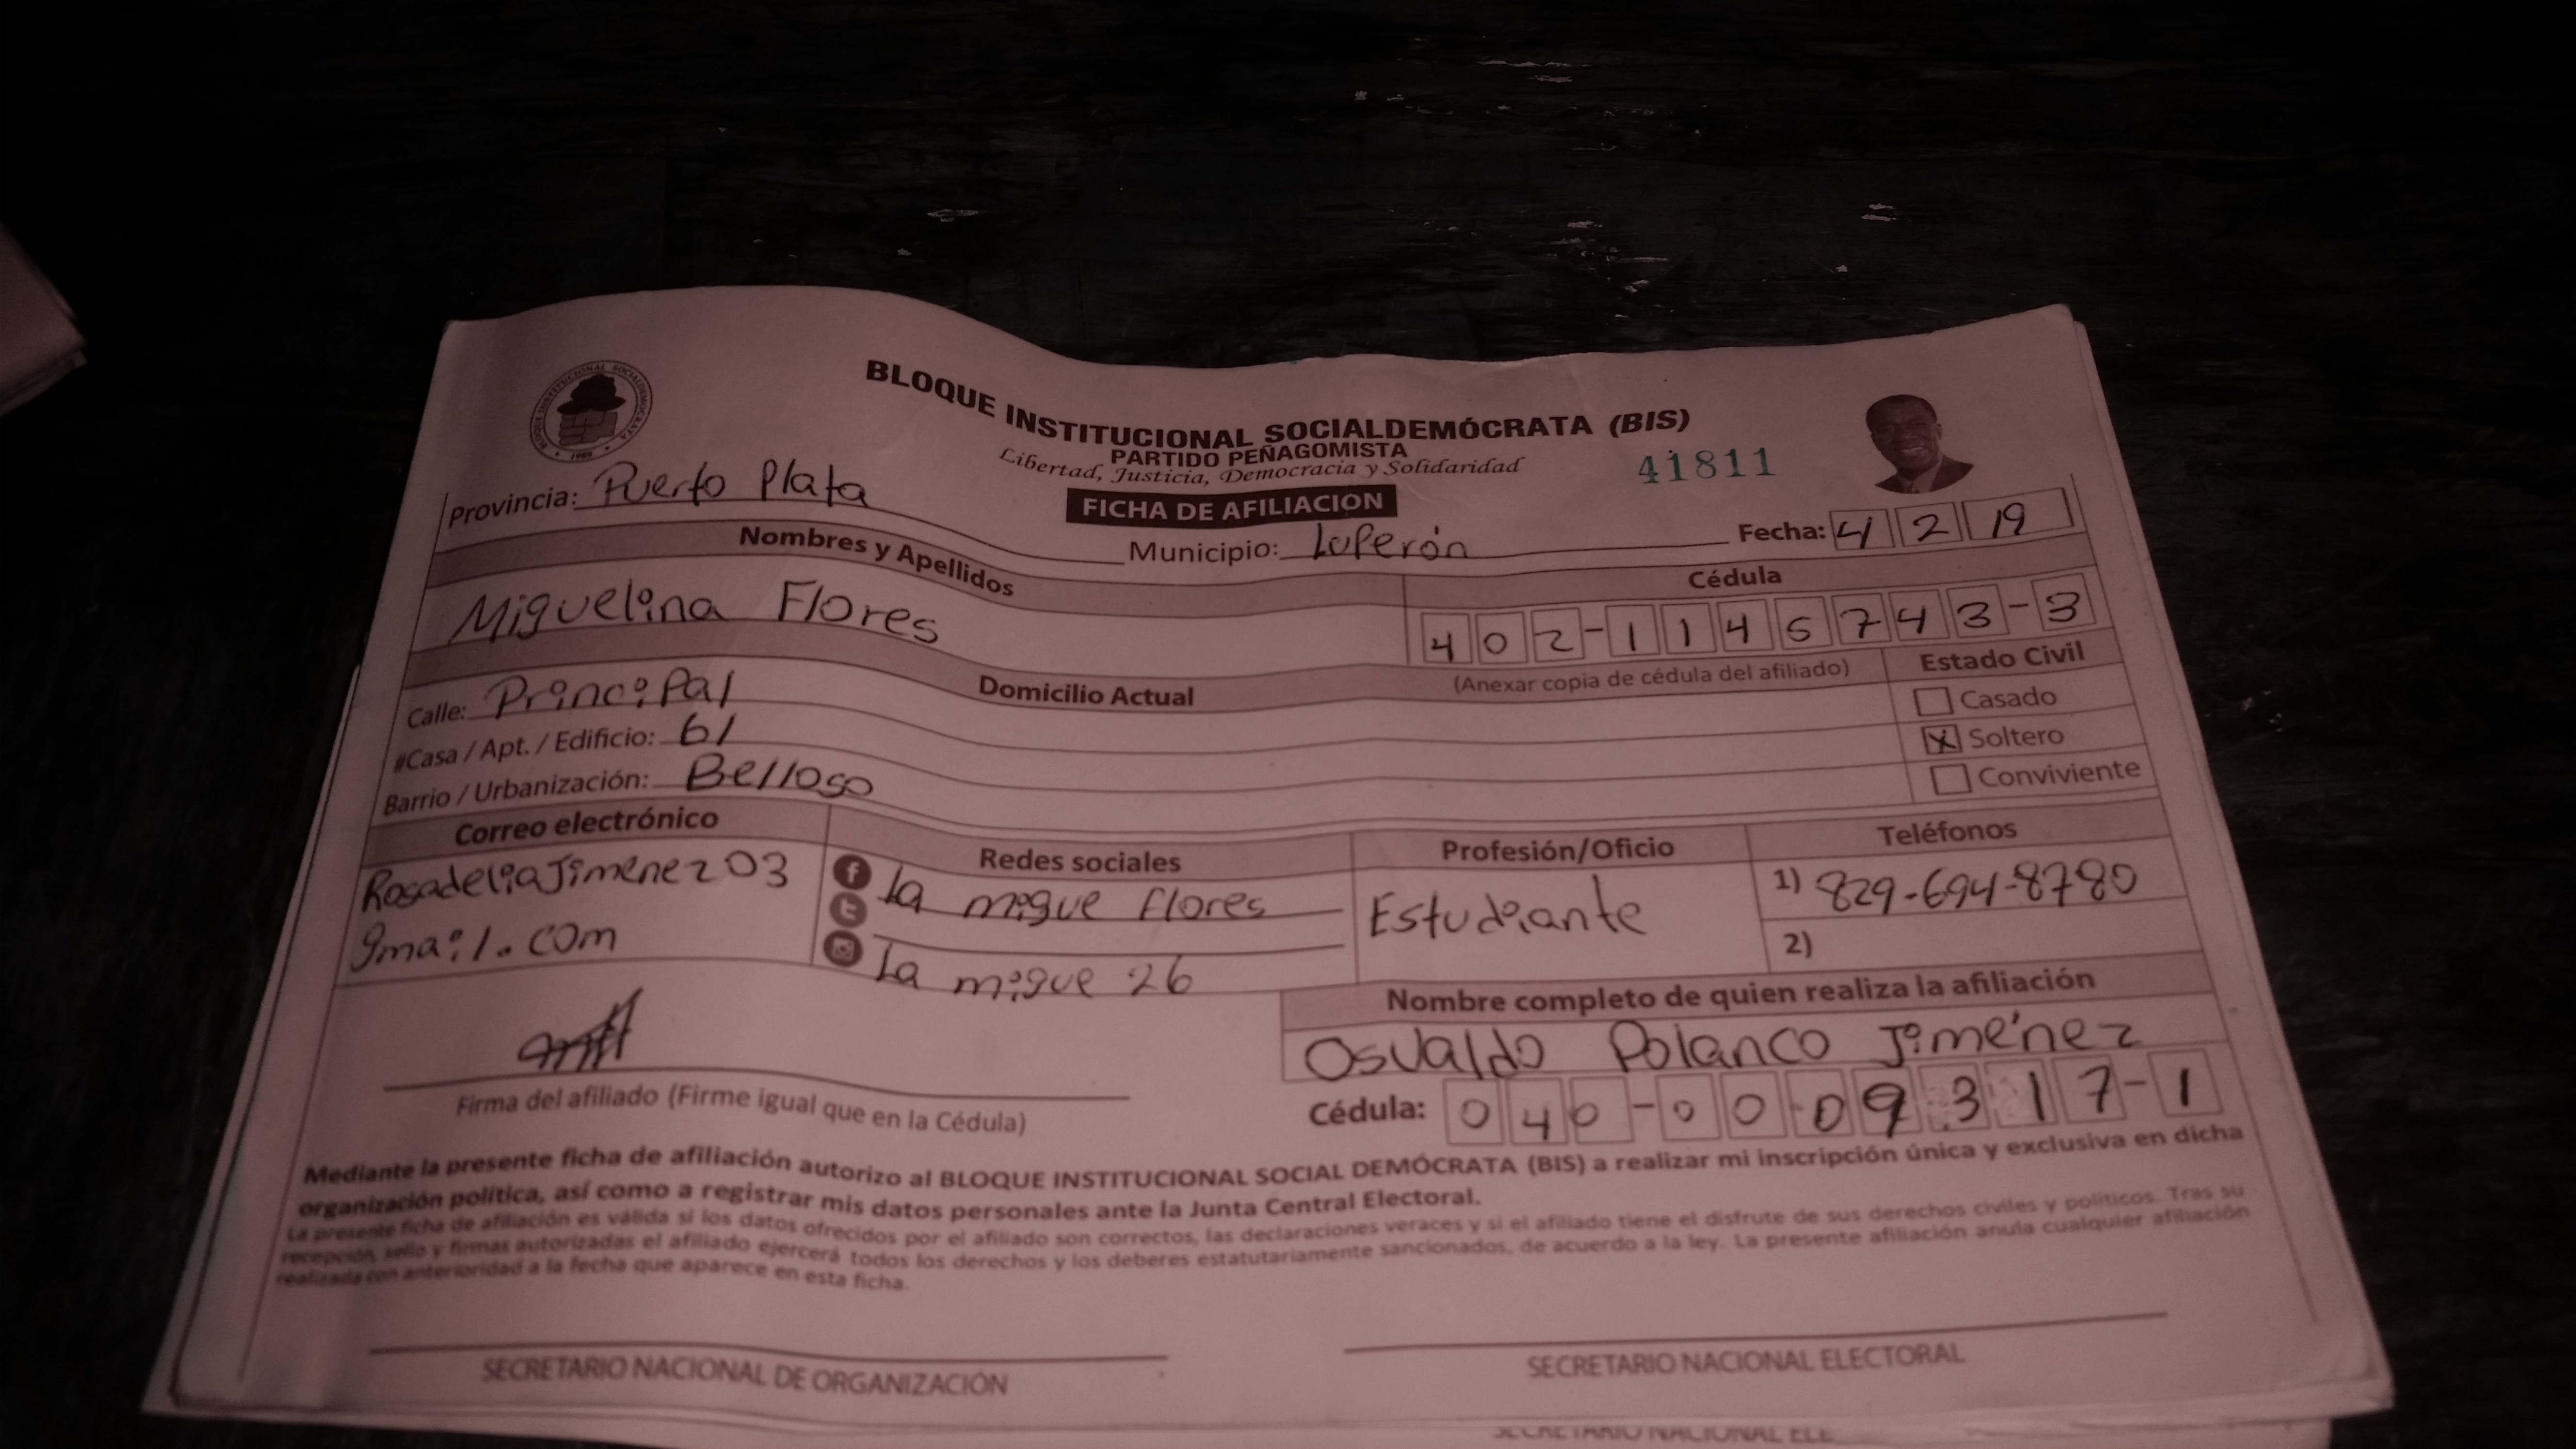 BLOQUE INSTITUCIONAL SOCIALDEMOCRATA
1989
BLOQUE INSTITUCIONAL SOCIALDEMÓCRATA (BIS)
PARTIDO PEÑAGOMISTA
Libertad, Justicia, Democracia y Solidaridad
41811
FICHA DE AFILIACION
Provincia: Puerto Plata
Municipio: Luperón
Fecha: 4 2 19
Nombres y Apellidos
Cédula
Miguelina Flores
402-1145743-3
(Anexar copia de cédula del afiliado)
Domicilio Actual
Estado Civil
Calle: Principal
Casado
#Casa / Apt. / Edificio: 61
X Soltero
Barrio / Urbanización: Belloso
Conviviente
Correo electrónico
Redes sociales
Profesión/Oficio
Teléfonos
RosadeliaJimenez03
gmail.com
la migue flores
la migue 26
Estudiante
1) 829-694-8780
2)
Nombre completo de quien realiza la afiliación
Osvaldo Polanco Jiménez
Cédula: 040-0009317-1
Firma del afiliado (Firme igual que en la Cédula)
Mediante la presente ficha de afiliación autorizo al BLOQUE INSTITUCIONAL SOCIAL DEMÓCRATA (BIS) a realizar mi inscripción única y exclusiva en dicha
organización política, así como a registrar mis datos personales ante la Junta Central Electoral.
La presente ficha de afiliación es válida si los datos ofrecidos por el afiliado son correctos, las declaraciones veraces y si el afiliado tiene el disfrute de sus derechos civiles y políticos. Tras su
recepción, sello y firmas autorizadas el afiliado ejercerá todos los derechos y los deberes estatutariamente sancionados, de acuerdo a la ley. La presente afiliación anula cualquier afiliación
realizada con anterioridad a la fecha que aparece en esta ficha.
SECRETARIO NACIONAL DE ORGANIZACIÓN
SECRETARIO NACIONAL ELECTORAL
SECRETARIO NACIONAL ELE